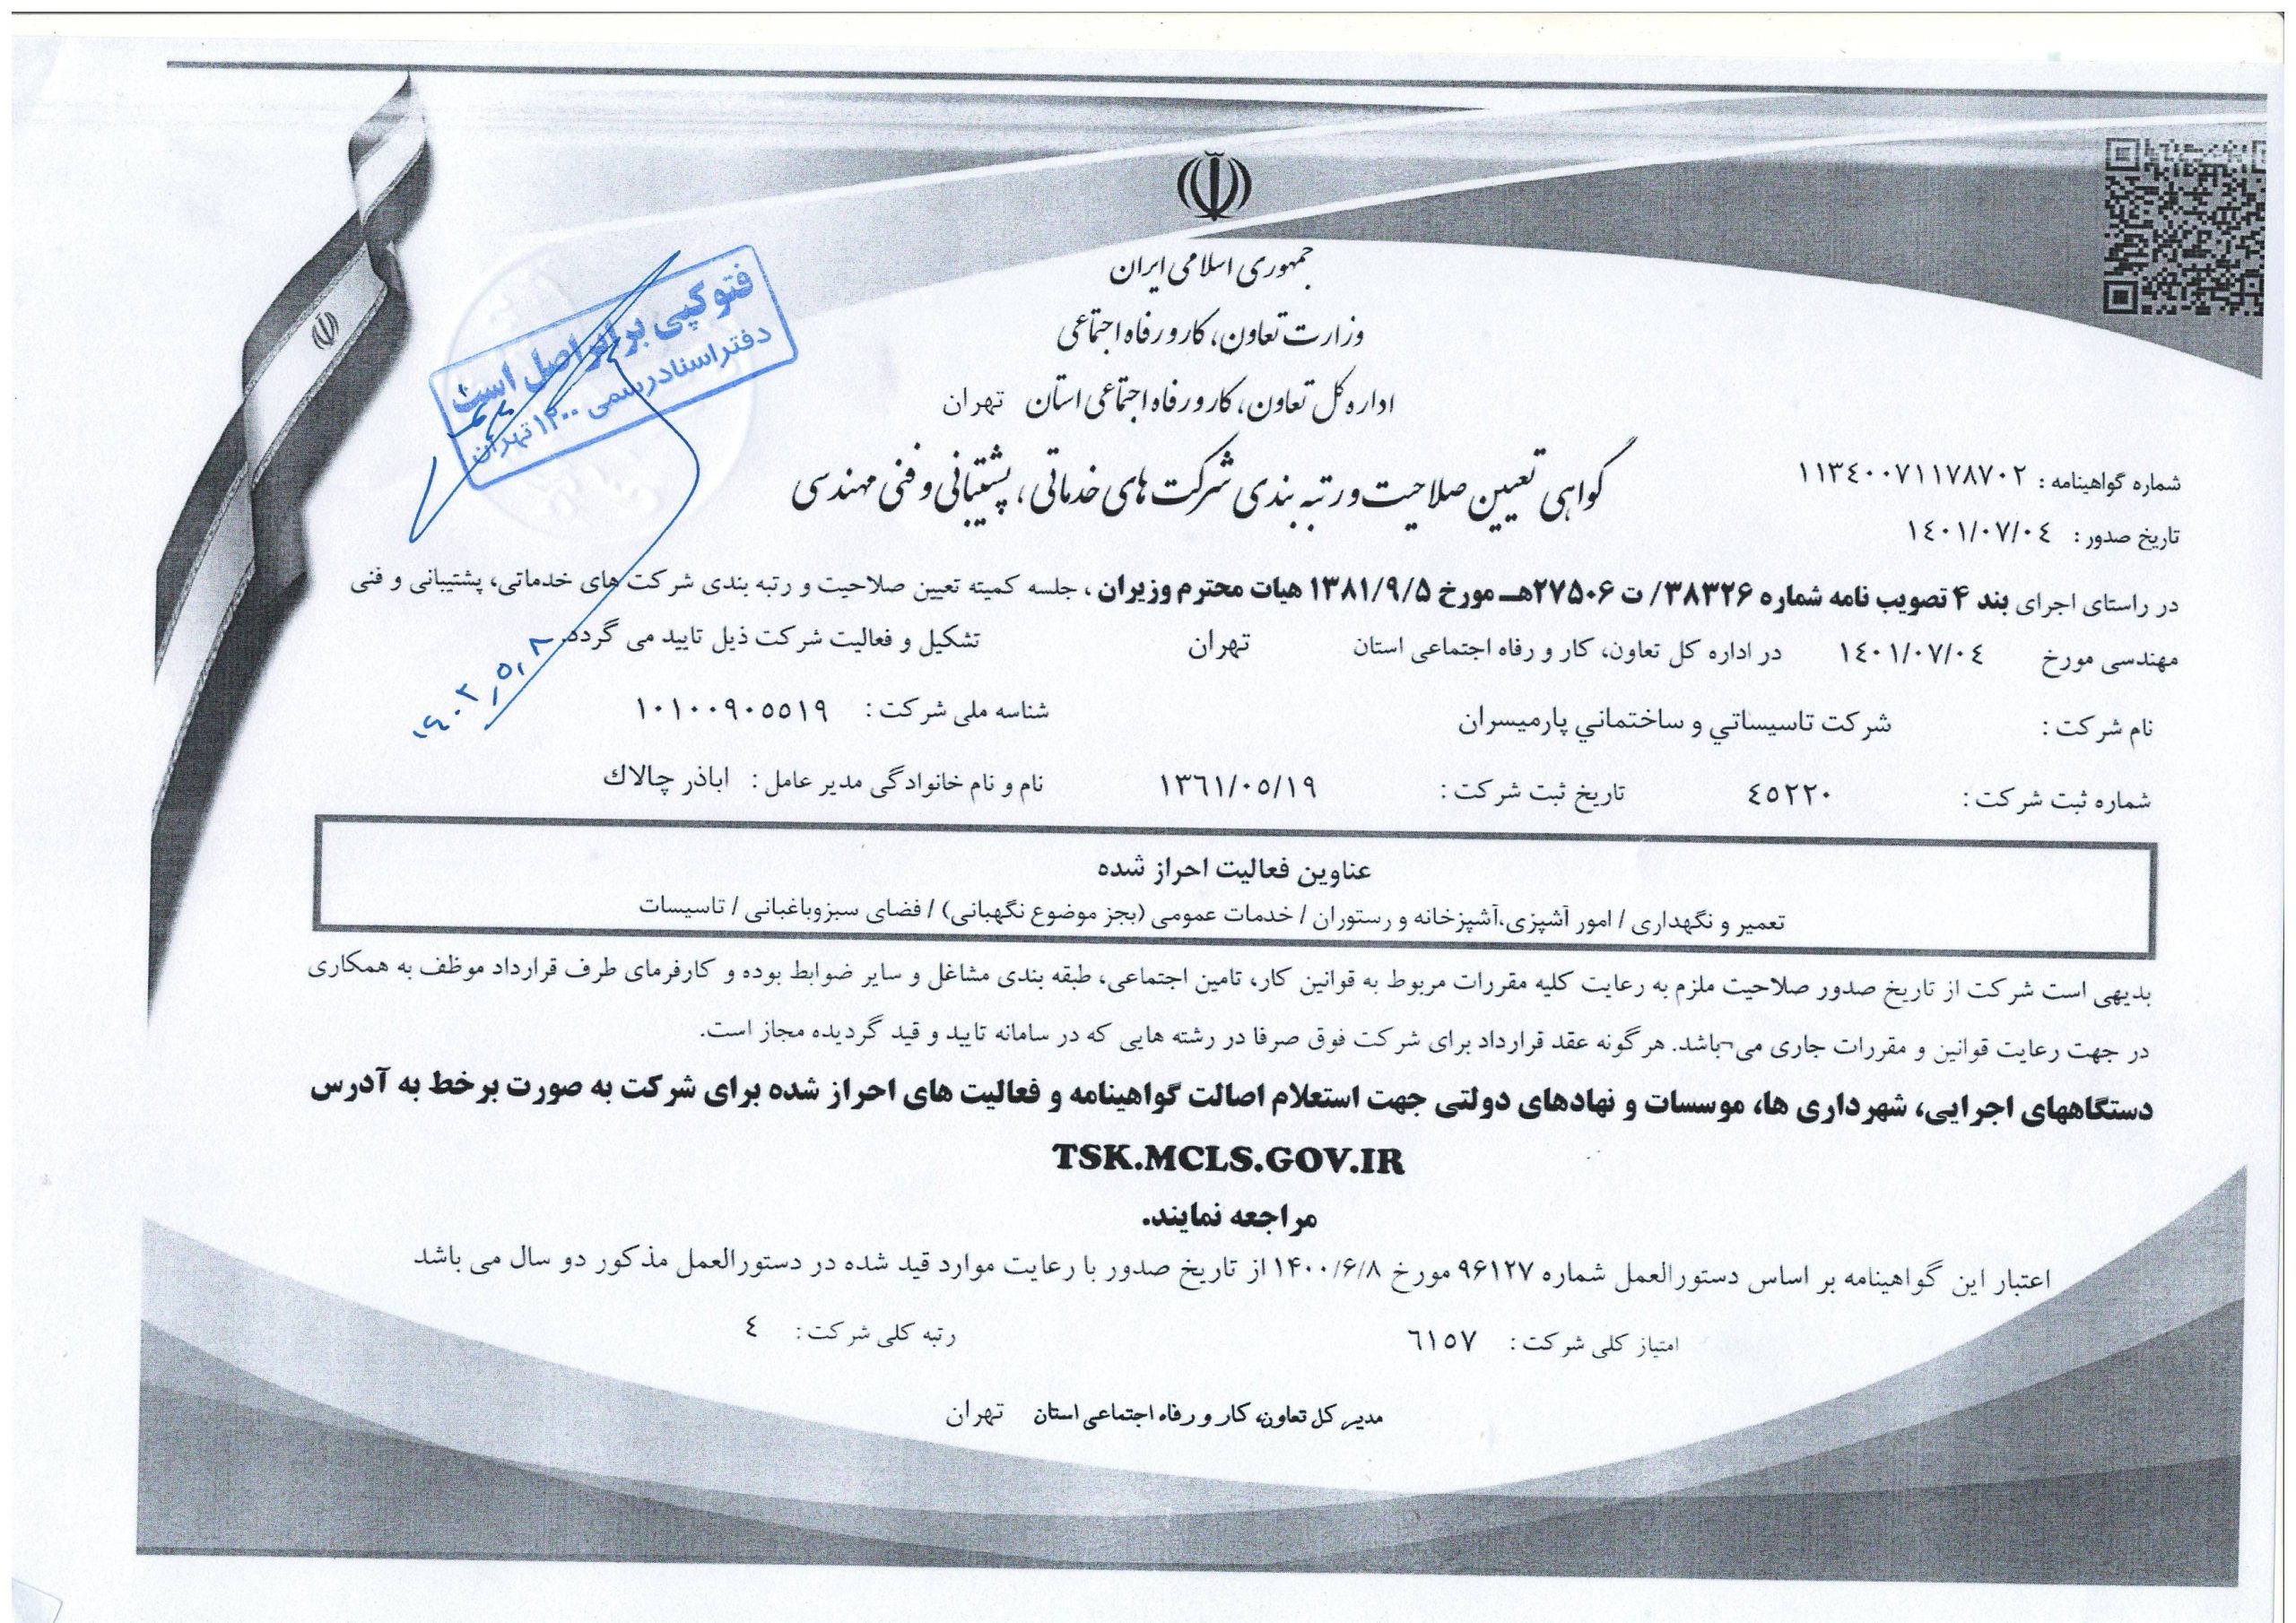 جمهوری اسلامی ایران
وزارت تعاون، کار و رفاه اجتماعی
اداره کل تعاون، کار و رفاه اجتماعی استان تهران
گواهی تعیین صلاحیت و رتبه بندی شرکت های خدماتی، پشتیبانی و فنی مهندسی
شماره گواهینامه : ١١٣٤٠٠٧١١٧٨٧٠٢
تاریخ صدور : ١٤٠١/٠٧/٠٤
فتوکپی برابر اصل است
دفتر اسناد رسمی ۱۲۰۰ تهران
در راستای اجرای بند ۴ تصویب نامه شماره ۳۸۳۲۶/ ت ۲۷۵۰۶هـ مورخ ۱۳۸۱/۹/۵ هیات محترم وزیران ، جلسه کمیته تعیین صلاحیت و رتبه بندی شرکت های خدماتی، پشتیبانی و فنی
مهندسی مورخ ١٤٠١/٠٧/٠٤ در اداره کل تعاون، کار و رفاه اجتماعی استان تهران تشکیل و فعالیت شرکت ذیل تایید می گردد.
۱۴۰۳,۵,۸
نام شرکت : شرکت تاسيساتي و ساختماني پارميسران شناسه ملی شرکت : ١٠١٠٠٩٠٥٥١٩
شماره ثبت شرکت : ٤٥٢٢٠ تاریخ ثبت شرکت : ١٣٦١/٠٥/١٩ نام و نام خانوادگی مدیر عامل : اباذر چالاك
عناوین فعالیت احراز شده
تعمیر و نگهداری / امور آشپزی،آشپزخانه و رستوران / خدمات عمومی (بجز موضوع نگهبانی) / فضای سبزوباغبانی / تاسیسات
بدیهی است شرکت از تاریخ صدور صلاحیت ملزم به رعایت کلیه مقررات مربوط به قوانین کار، تامین اجتماعی، طبقه بندی مشاغل و سایر ضوابط بوده و کارفرمای طرف قرارداد موظف به همکاری
در جهت رعایت قوانین و مقررات جاری می¬باشد. هرگونه عقد قرارداد برای شرکت فوق صرفا در رشته هایی که در سامانه تایید و قید گردیده مجاز است.
دستگاههای اجرایی، شهرداری ها، موسسات و نهادهای دولتی جهت استعلام اصالت گواهینامه و فعالیت های احراز شده برای شرکت به صورت برخط به آدرس
TSK.MCLS.GOV.IR
مراجعه نمایند.
اعتبار این گواهینامه بر اساس دستورالعمل شماره ۹۶۱۲۷ مورخ ۱۴۰۰/۶/۸ از تاریخ صدور با رعایت موارد قید شده در دستورالعمل مذکور دو سال می باشد
امتیاز کلی شرکت : ٦١٥٧ رتبه کلی شرکت : ٤
مدیر کل تعاون، کار و رفاه اجتماعی استان تهران